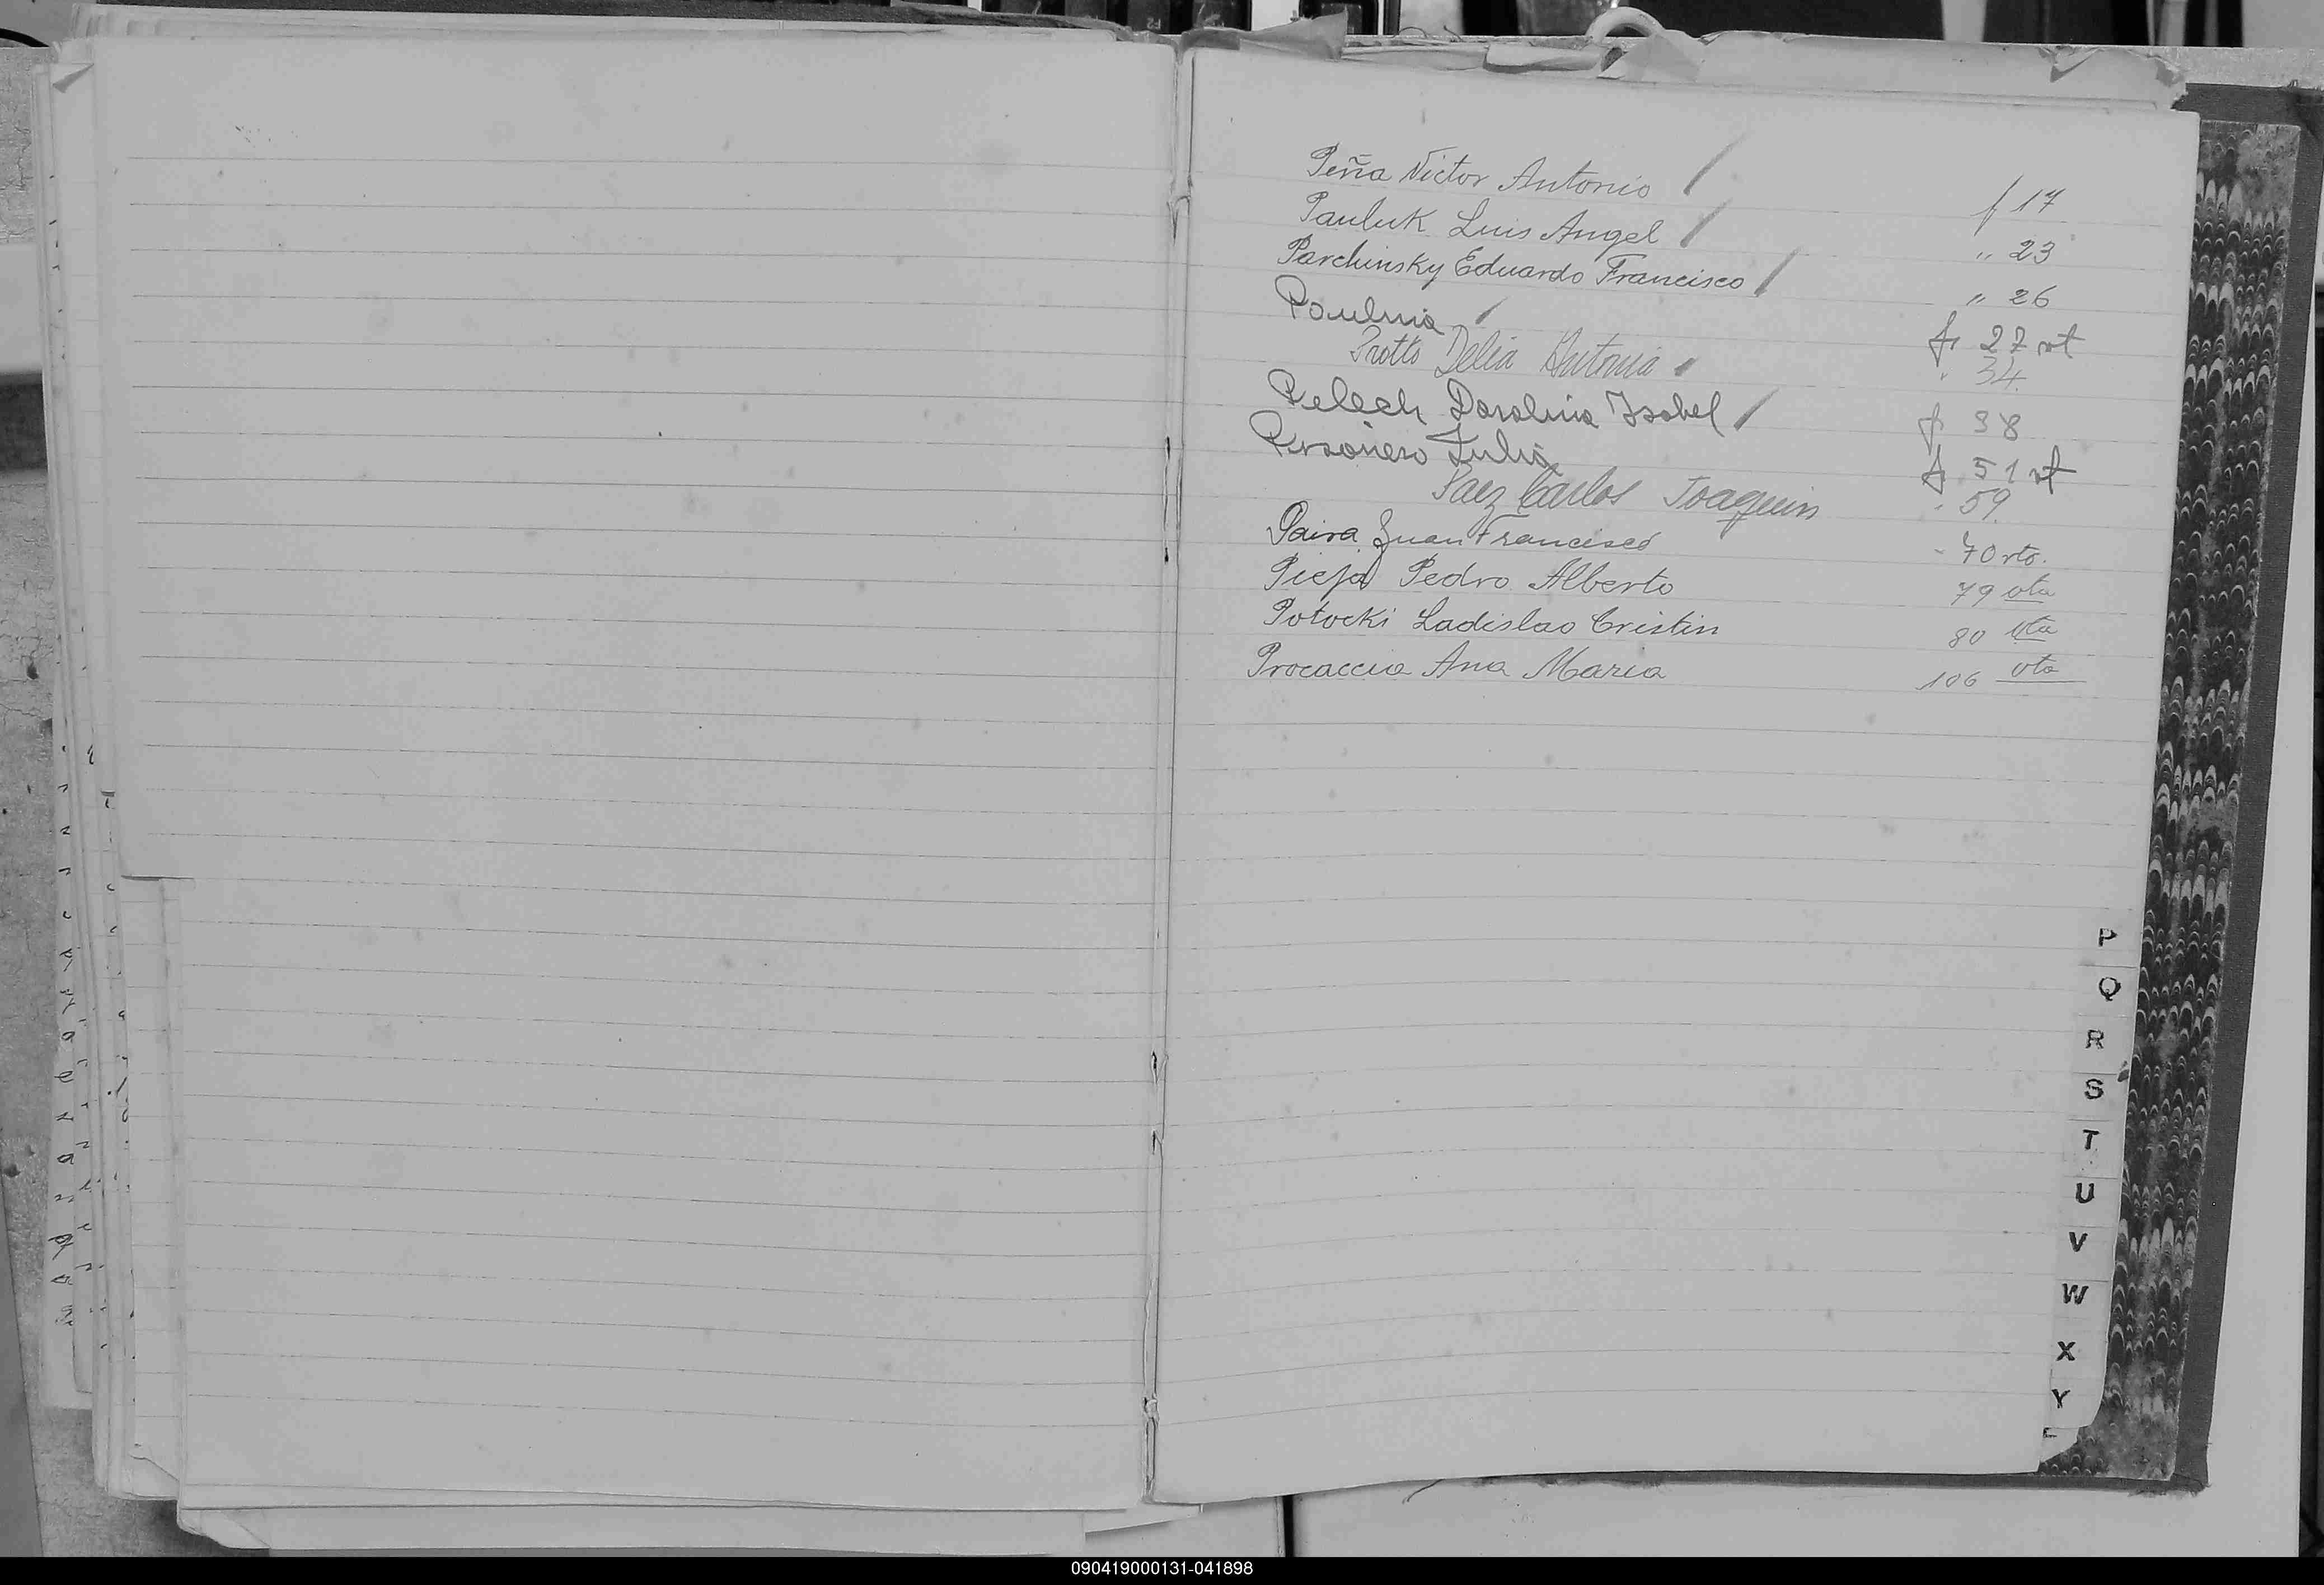 Peña Victor Antonio / f 17
Pauluk Luis Angel / " 23
Parchinsky Eduardo Francisco / " 26
Paulina / f 27 vt
Protto Delia Antonia " 34
Pelech Doralina Isabel / f 38
Personero Julia f 51 vt
Paez Carlos Joaquin " 59
Paiva Juan Francisco - 70 vto.
Pieja Pedro Alberto 79 vta
Potocki Ladislao Cristin 80 vta
Procaccia Ana Maria 106 vta
P
Q
R
S
T
U
V
W
X
Y
090419000131-041898